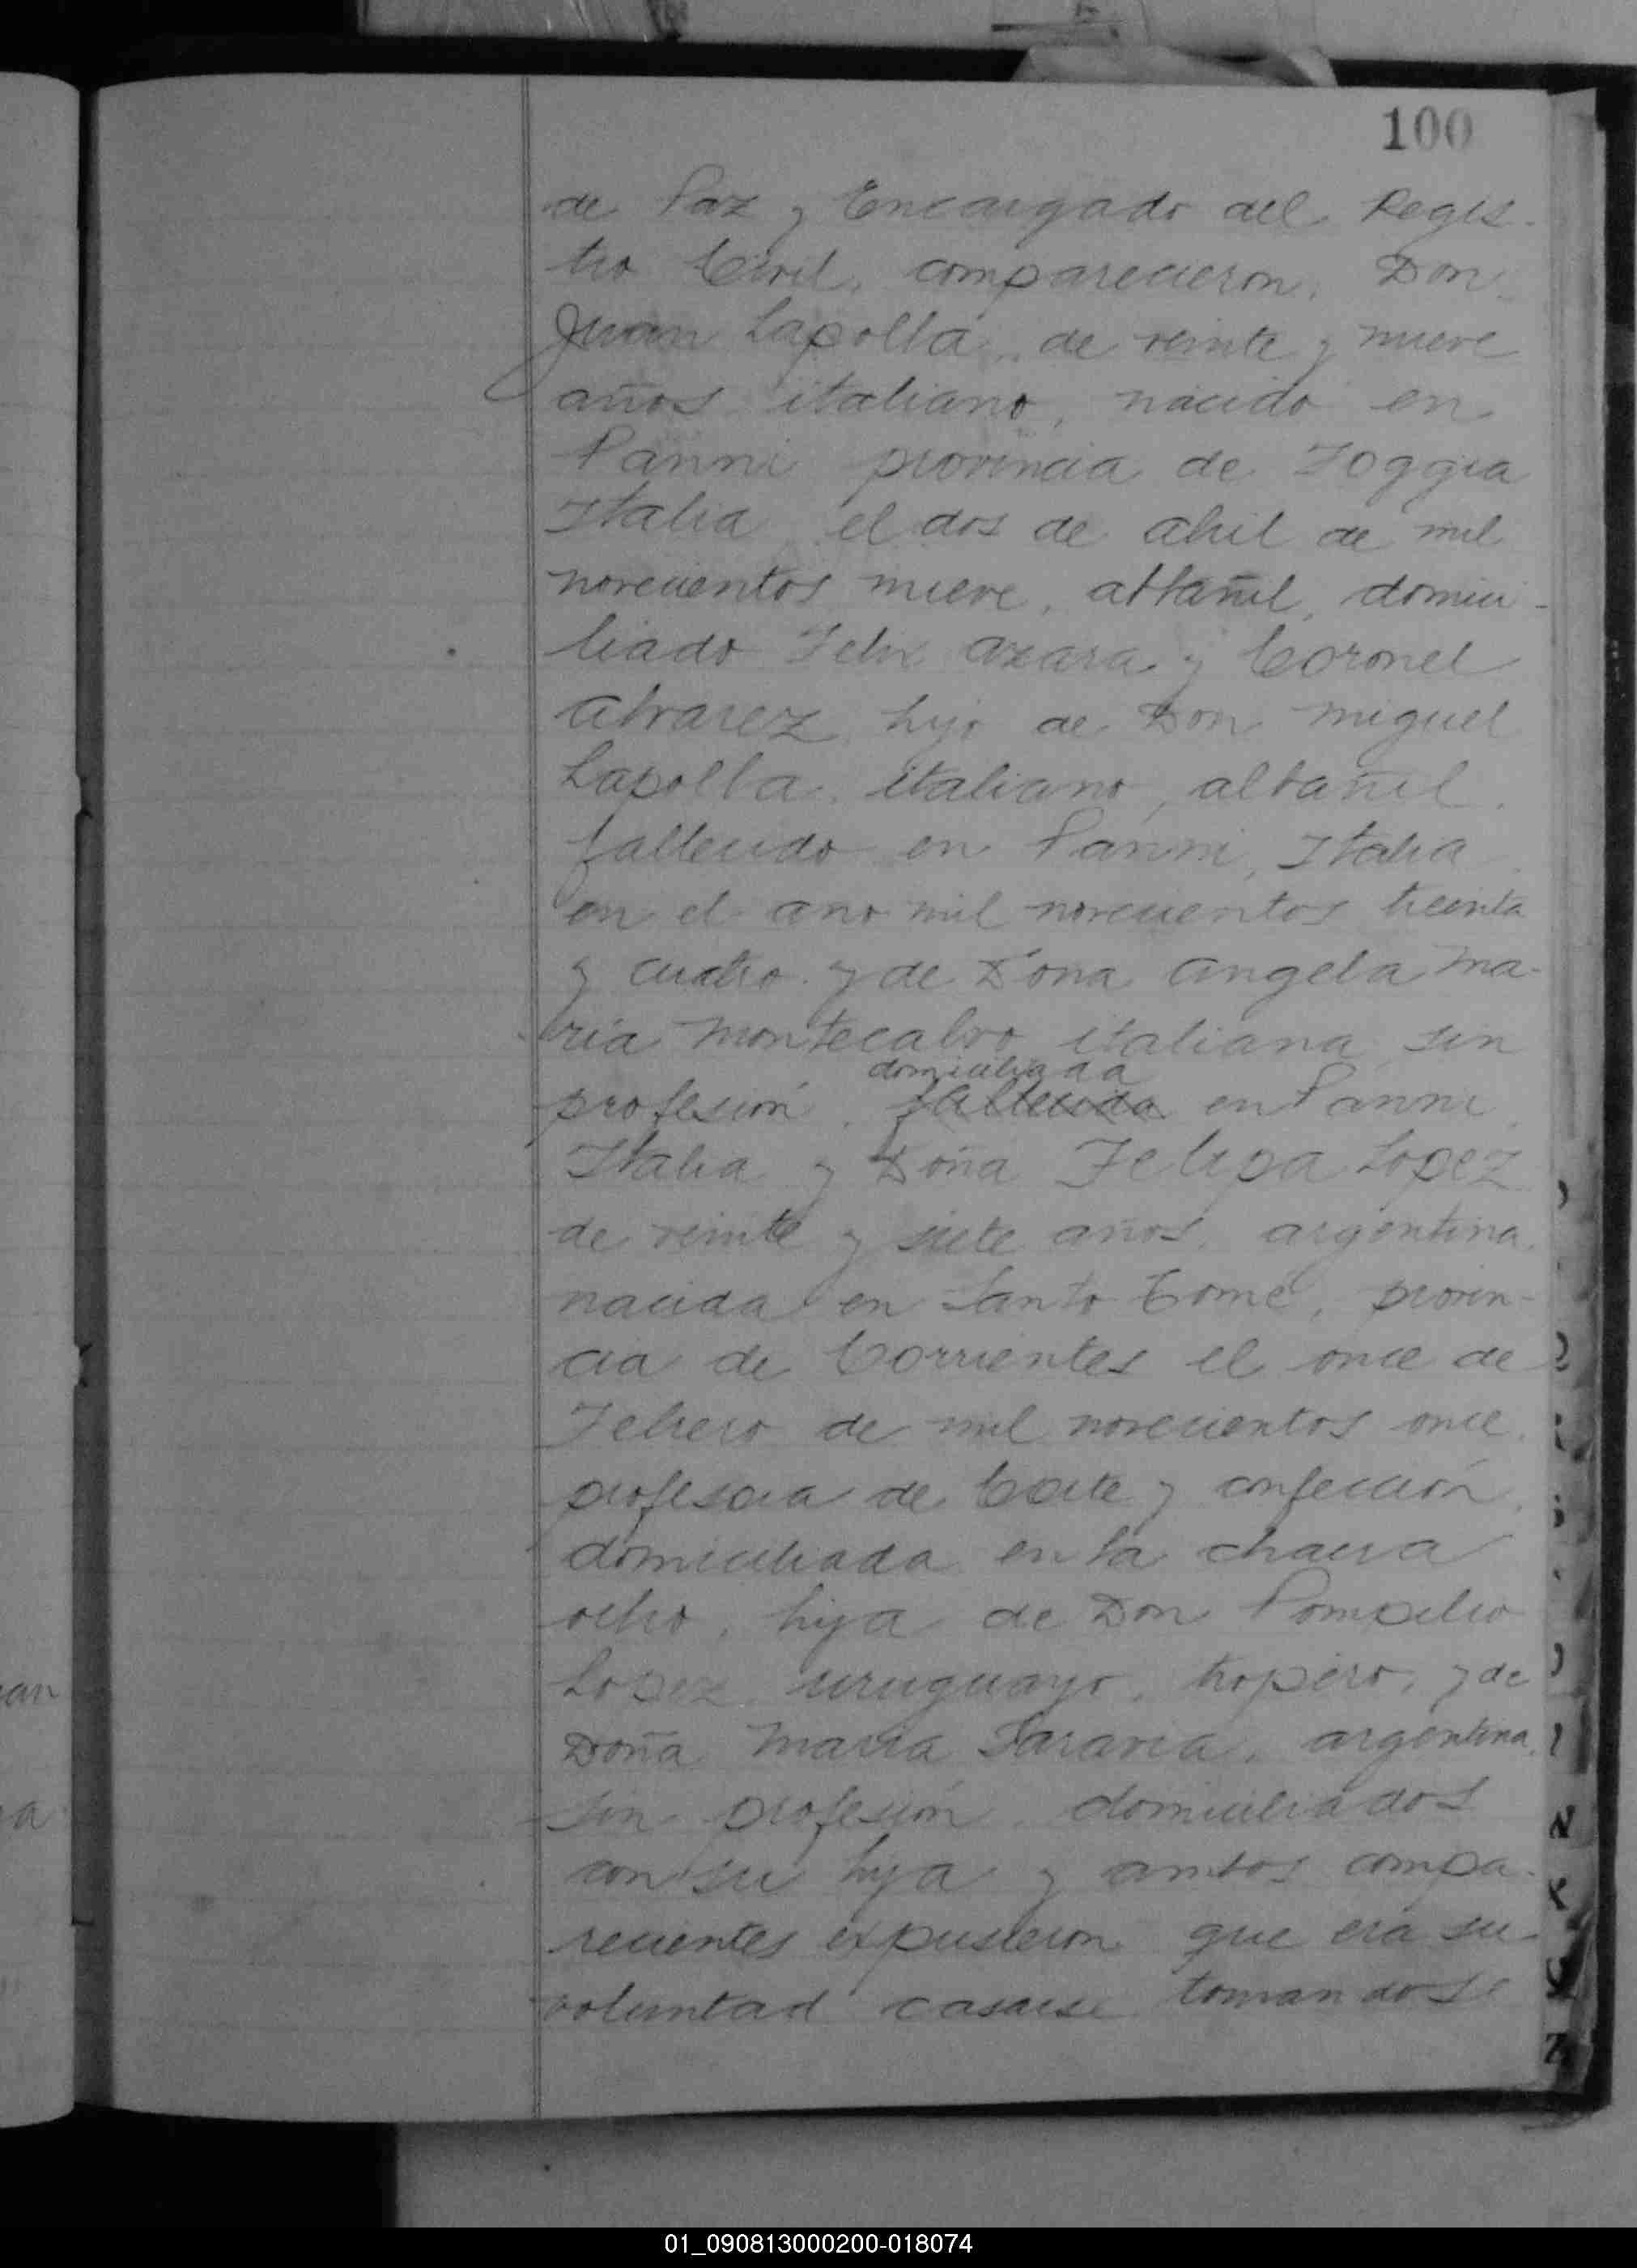 100
de Paz y Encargado del Regis-
tro Civil, comparecieron, Don
Juan Lapolla, de veinte y nueve
años italiano, nacido en
Panni provincia de Foggia
Italia el dos de abril de mil
novecientos nueve, albañil, domici-
liado Felix Azara y Coronel
Alvarez, hijo de Don Miguel
Lapolla, italiano, albañil,
fallecido en Panni, Italia
en el año mil novecientos treinta
y cuatro y de Doña Angela Ma-
ria Montecalvo italiana sin
domiciliada
profesión, fallecida en Panni
Italia y Doña Felipa Lopez
de veinte y siete años, argentina,
nacida en Santo Tomé, provin-
cia de Corrientes el once de
Febrero de mil novecientos once,
profesora de Corte y confección,
domiciliada en la chacra
ocho, hija de Don Pompilio
Lopez uruguayo, tropero, y de
Doña Maria Saravia, argentina,
sin profesión, domiciliados
con su hija y ambos compa-
recientes expusieron que era su
voluntad casarse tomandose
01_090813000200-018074